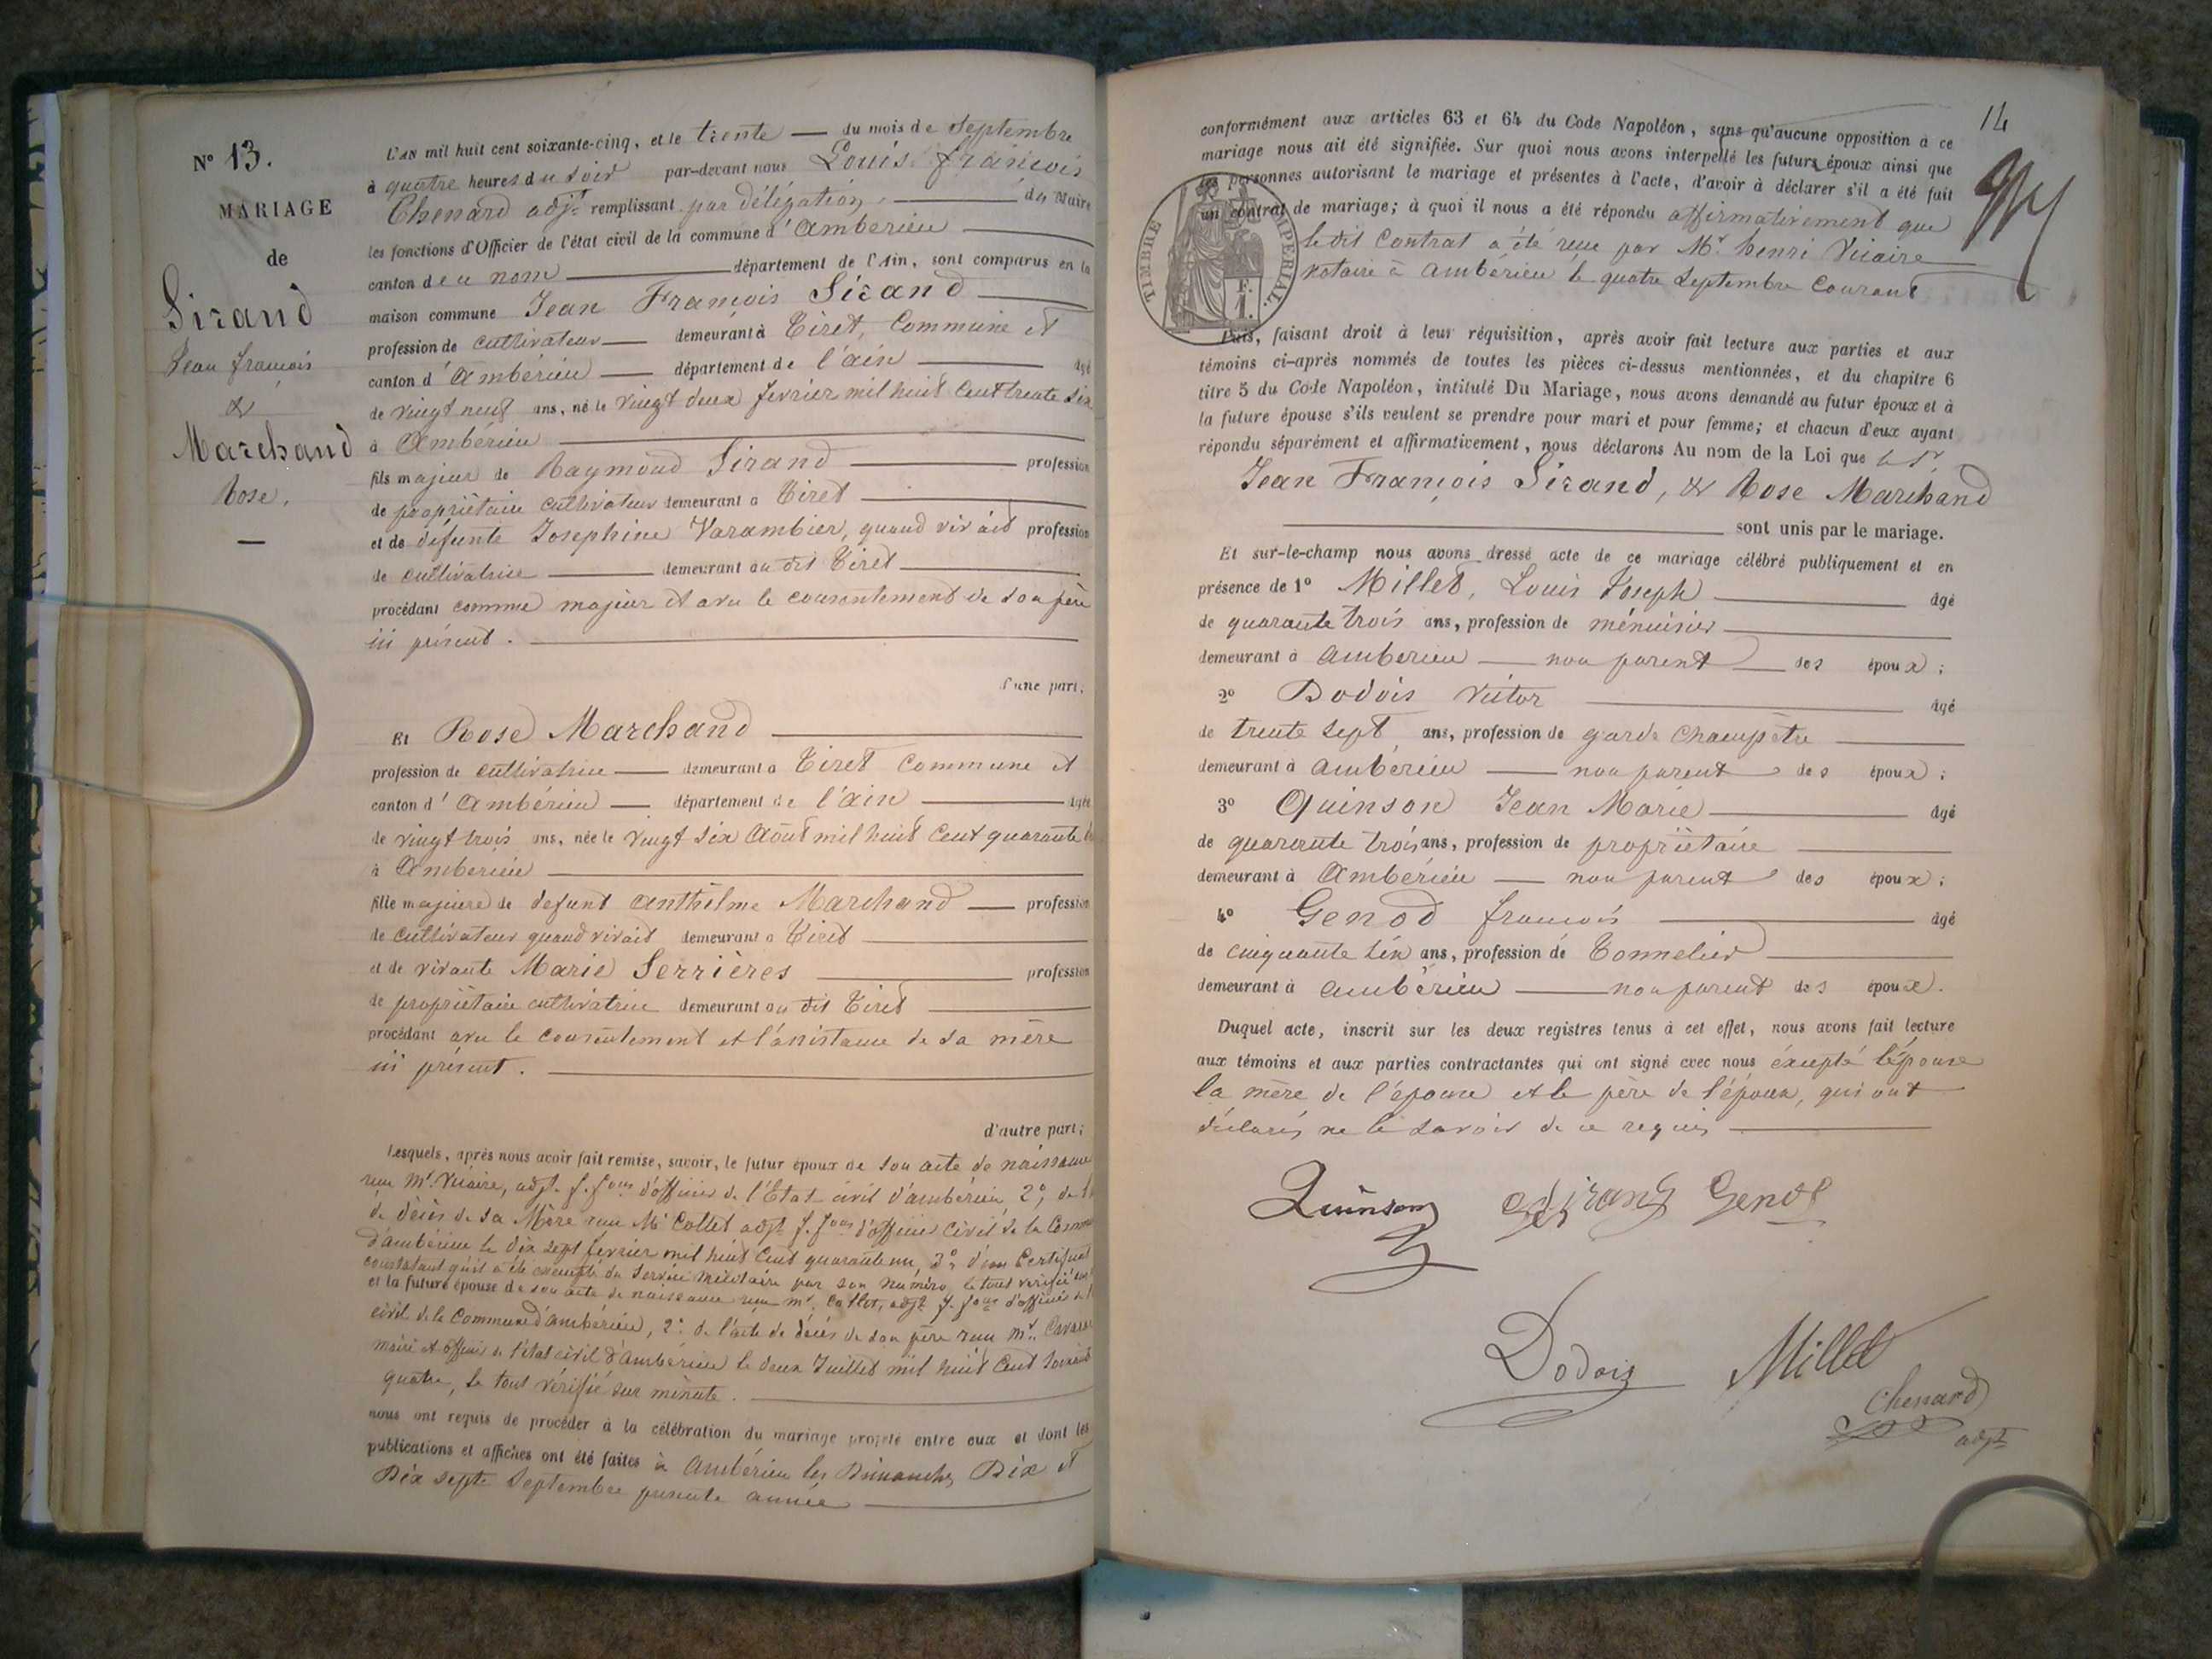 N° 13.
MARIAGE
de
Sirand
Jean françois
&
Marchand
Rose.
L'AN mil huit cent soixante-cinq, et le trente du mois de Septembre
à quatre heures du soir par-devant nous Louis françois
Chenard adjt remplissant par délégation du Maire
les fonctions d'Officier de l'état civil de la commune d'ambérieu
canton de ce nom département de l'Ain, sont comparus en la
maison commune Jean François Sirand
profession de cultivateur demeurant à Tiret, Commune et
canton d'Ambérieu département de l'ain âgé
de vingt neuf ans, né le vingt deux fevrier mil huit cent trente six
à Ambérieu
fils majeur de Raymond Sirand profession
de propriétaire cultivateur demeurant à Tiret
et de défunte Josephine Varambier, quand vivait profession
de cultivatrice demeurant au dit Tiret
procédant comme majeur et avec le consentement de son père
ici présent.
d'une part;
Et Rose Marchand
profession de cultivatrice demeurant à Tiret Commune et
canton d'Ambérieu département de l'ain âgée
de vingt trois ans, née le vingt six Août mil huit cent quarante
à Ambérieu
fille majeure de defunt Anthelme Marchand profession
de cultivateur quand vivait demeurant à Tiret
et de vivante Marie Serrières profession
de propriétaire cultivatrice demeurant au dit Tiret
procédant avec le consentement et l'assistance de sa mère
ici présent.
d'autre part;
Lesquels, après nous avoir fait remise, savoir, le futur époux de son acte de naissance
reçu Mr. Vicaire, adjt. f. fons d'officier de l'Etat civil d'ambérieu, 2°, de
de décès de sa Mère reçu Mr Collet adjt f. fons d'officier civil de la Comm
d'ambérieu le dix sept février mil huit cent quarante un, 3°, d'un Certificat
constatant qu'il a été exempté du Service militaire par son numéro, le tout vérifié
et la future épouse de son acte de naissance reçu mr. Collet, adjt f. fons d'officier de
civil de la Commune d'ambérieu, 2° de l'acte de décès de son père reçu Mr.
maire et officier de l'état civil d'Ambérieu le deux Juillet mil huit cent soixante
quatre, le tout vérifié sur minute.
nous ont requis de procéder à la célébration du mariage projeté entre eux et dont les
publications et affiches ont été faites à Ambérieu les Dimanches Dix et
Dix sept Septembre presente année
14
conformément aux articles 63 et 64 du Code Napoléon, sans qu'aucune opposition à ce
mariage nous ait été signifiée. Sur quoi nous avons interpellé les futurs époux ainsi que
les personnes autorisant le mariage et présentes à l'acte, d'avoir à déclarer s'il a été fait
un contrat de mariage; à quoi il nous a été répondu affirmativement que
le dit Contrat a été reçu par Mr. henri Vicaire
notaire à Ambérieu le quatre Septembre Courant
TIMBRE IMPERIAL
F.
1.
Puis, faisant droit à leur réquisition, après avoir fait lecture aux parties et aux
témoins ci-après nommés de toutes les pièces ci-dessus mentionnées, et du chapitre 6
titre 5 du Code Napoléon, intitulé Du Mariage, nous avons demandé au futur époux et à
la future épouse s'ils veulent se prendre pour mari et pour femme; et chacun d'eux ayant
répondu séparément et affirmativement, nous déclarons Au nom de la Loi que le Sr.
Jean François Sirand, & Rose Marchand
sont unis par le mariage.
Et sur-le-champ nous avons dressé acte de ce mariage célébré publiquement et en
présence de 1° Millet, Louis Joseph âgé
de quarante trois ans, profession de ménuisier
demeurant à Ambérieu non parent des époux;
2° Dodois Victor âgé
de trente sept ans, profession de garde champêtre
demeurant à Ambérieu non parent des époux;
3° Quinson Jean Marie âgé
de quarante trois ans, profession de propriétaire
demeurant à Ambérieu non parent des époux;
4° Genod françois âgé
de cinquante six ans, profession de Tonnelier
demeurant à Ambérieu non parent des époux.
Duquel acte, inscrit sur les deux registres tenus à cet effet, nous avons fait lecture
aux témoins et aux parties contractantes qui ont signé avec nous éxcepté l'épouse
la mère de l'épouse et le père de l'époux, qui ont
déclarés ne le savoir de ce requis
Quinson Sirand Genod
Dodois Millet
Chenard
adjt